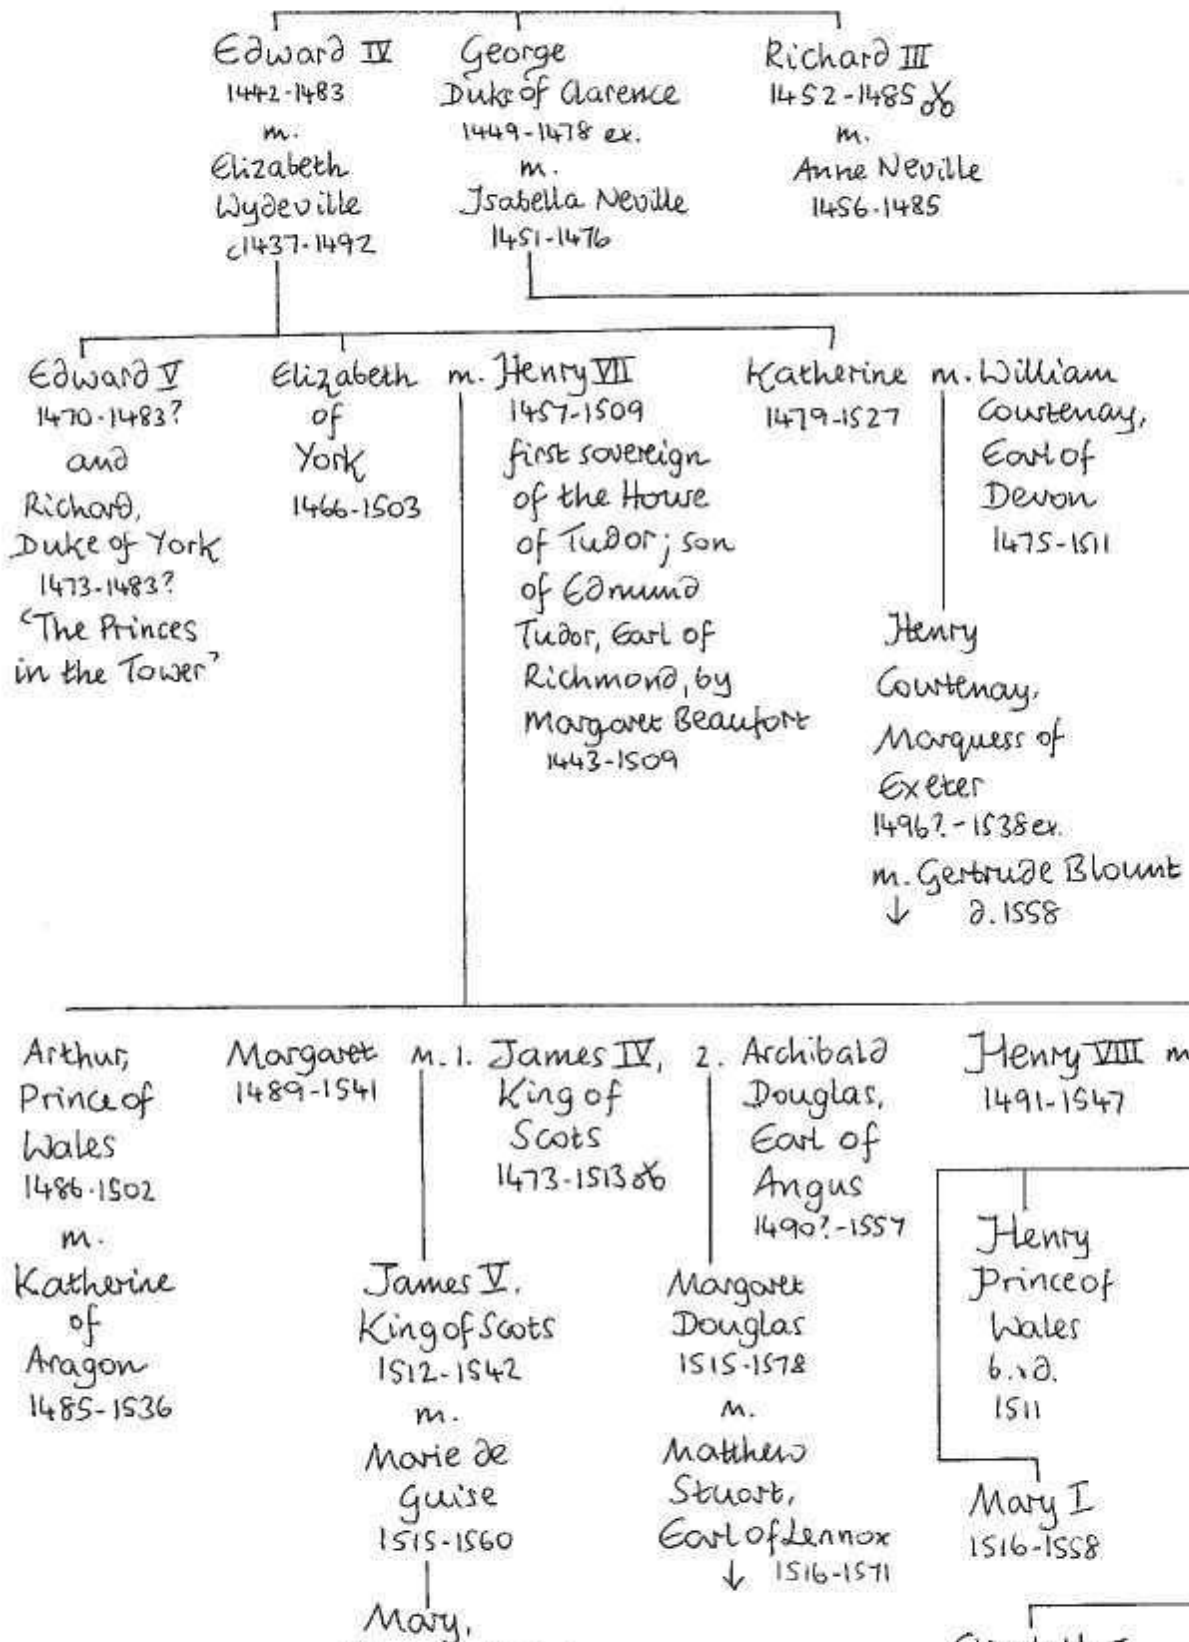 Edward IV
1442-1483
m.
Elizabeth
Wydeville
c1437-1492
George
Duke of Clarence
1449-1478 ex.
m.
Isabella Neville
1451-1476
Richard III
1452-1485
m.
Anne Neville
1456-1485
Edward V
1470-1483?
and
Richard,
Duke of York
1473-1483?
'The Princes
in the Tower'
Elizabeth
of
York
1466-1503
m. Henry VII
1457-1509
first sovereign
of the House
of Tudor; son
of Edmund
Tudor, Earl of
Richmond, by
Margaret Beaufort
1443-1509
Katherine
1479-1527
m. William
Courtenay,
Earl of
Devon
1475-1511
Henry
Courtenay,
Marquess of
Exeter
1496?-1538 ex.
m. Gertrude Blount
d. 1558
Arthur,
Prince of
Wales
1486-1502
m.
Katherine
of
Aragon
1485-1536
Margaret
1489-1541
m. 1. James IV,
King of
Scots
1473-1513
2. Archibald
Douglas,
Earl of
Angus
1490?-1557
Henry VIII m
1491-1547
James V,
King of Scots
1512-1542
m.
Marie de
Guise
1515-1560
Mary,
Margaret
Douglas
1515-1578
m.
Matthew
Stuart,
Earl of Lennox
1516-1571
Henry
Prince of
Wales
b. & d.
1511
Mary I
1516-1558